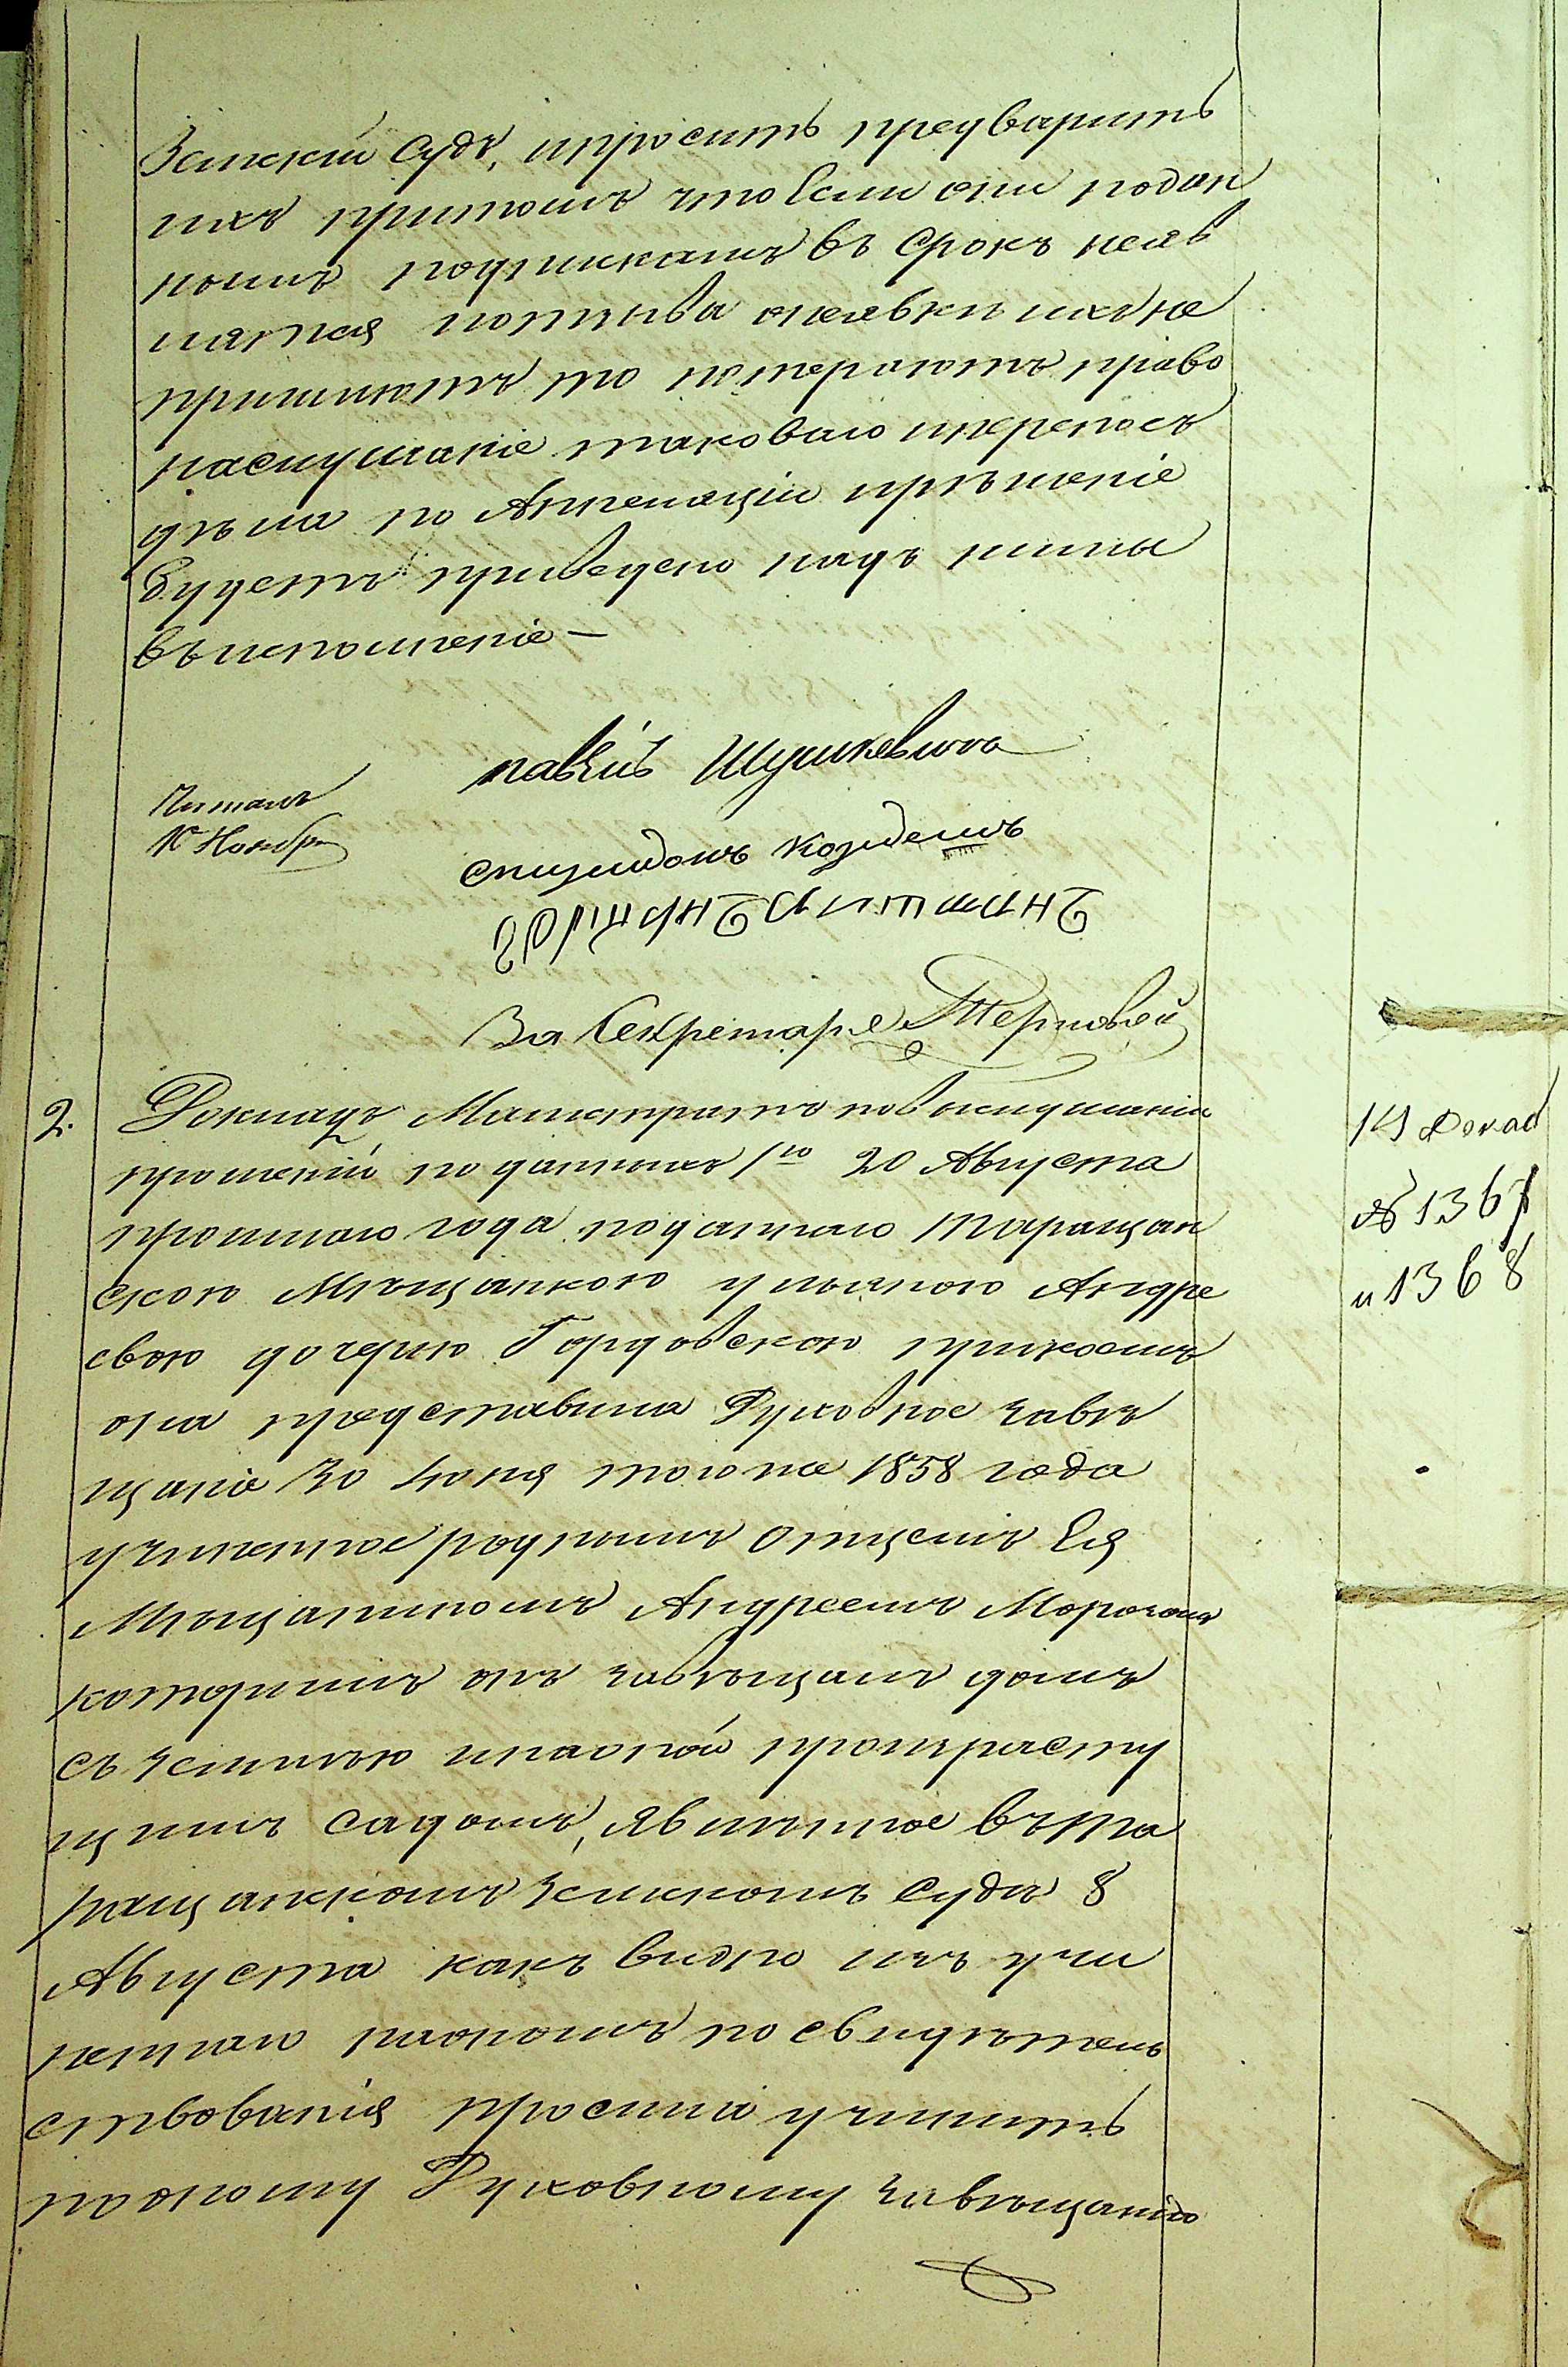 Земскій Судъ, ипросить предварить
ихъ притомъ что если они подан
нымъ подпискамъ въ срокъ неяв
ятся ноотзыва онеявки ихъ не
пришлютъ то потеряютъ право
наслушаніе таковаго иперенос
дѣла по Аппеляціи ирѣшеніе
будетъ приведено надъ ними
въ исполненіе —
Павелъ
Читалъ
10 Ноября
За Секретаря Терновой
2. Докладъ Магистрата повыслушаніи
прошеній поданныхъ 1го 20 Августа
прошлаго года поданнаго Таращан
скою Мѣщанкою Ульяною Андре
евою дочерью Гордовскою прикоемъ
она представила Духовное завѣ
щаніе 30 Іюня тогоже 1858 года
учиненное роднымъ отцемъ Ея
Мѣщаниномъ Андреемъ Морозомъ
которымъ онъ завѣщалъ домъ
съ землею инаоной произрасту
щимъ садомъ, явленное въ Та
ращанскомъ Земскомъ Судѣ 8
Августа какъ видно изъ учи
неннаго наономъ посвидѣтель
ствованія просила учинить
поономy Духовному завѣщанію
19 Докла
№ 1367
и 1368